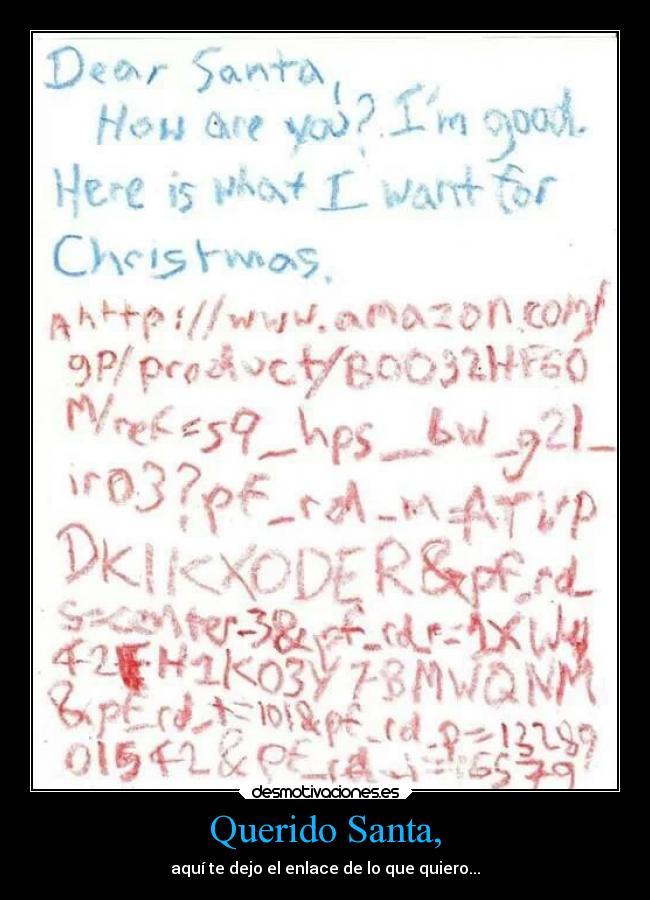 Dear Santa,
How are you? I'm good.
Here is what I want for
Christmas.
A http://www.amazon.com/
gp/product/B0032HF60
M/ref=s9_hps_bw_g21_
ir03?pf_rd_m=ATVP
DKIKX0DER&pf_rd_
s=center-3&pf_rd_r=1XWY
42EH1K03Y78MWQNM
&pf_rd_t=101&pf_rd_p=13289
01542&pf_rd_i=16579
desmotivaciones.es
Querido Santa,
aquí te dejo el enlace de lo que quiero...